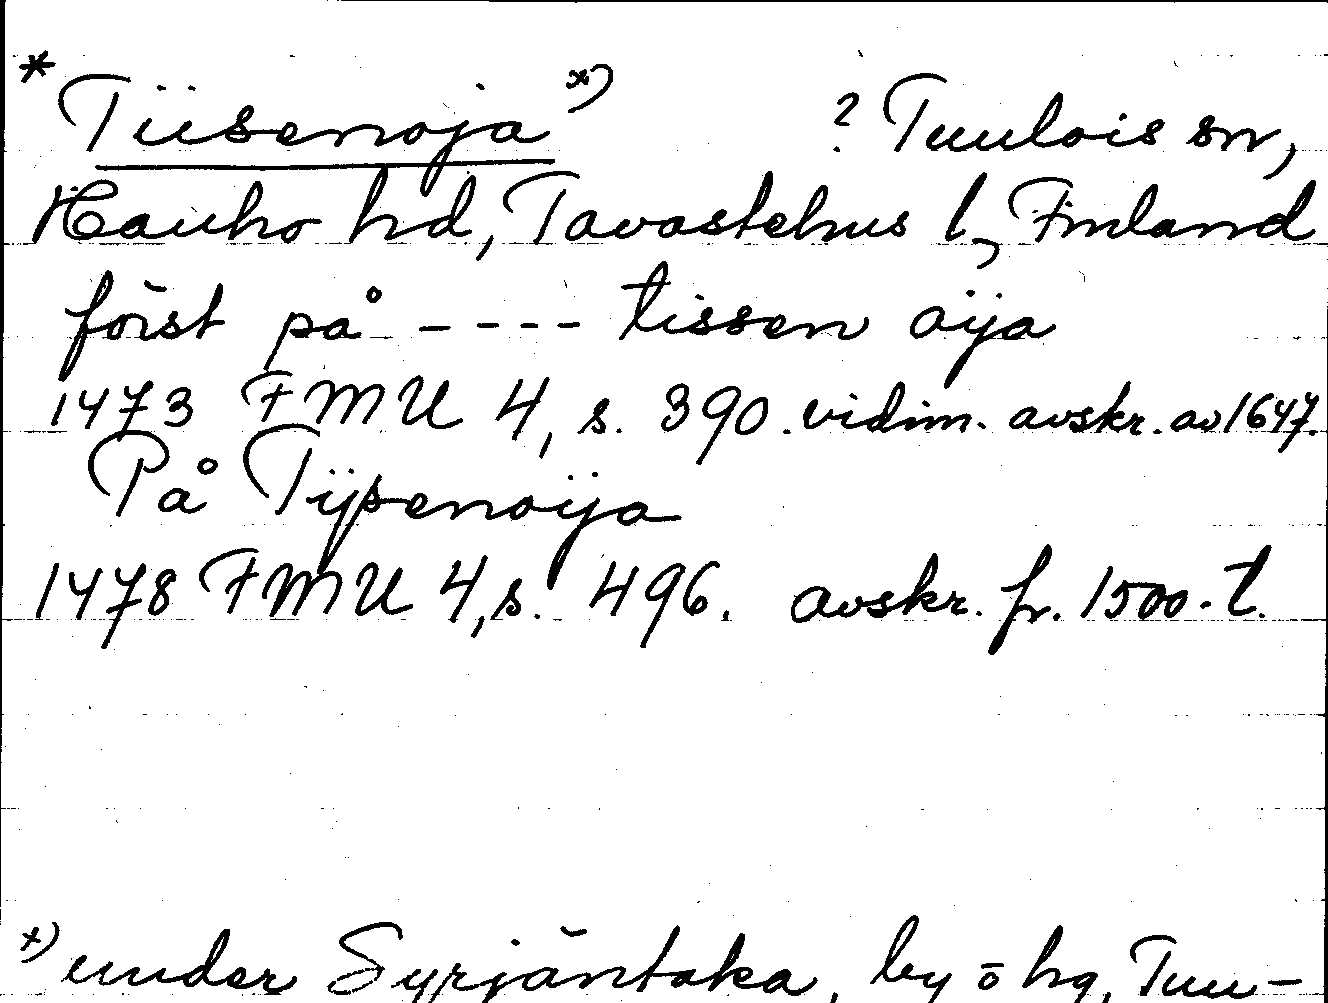 * Tiisenoja *) ? Tuulois sn,
Hauho hd, Tavastehus l, Finland
först på ---- tissen oija
1473 FMU 4, s. 390. vidim. avskr. av 1647.
På Tijsenoija
1478 FMU 4, s. 496. avskr. fr. 1500-t.
*) under Syrjäntaka, by o hg, Tuu-